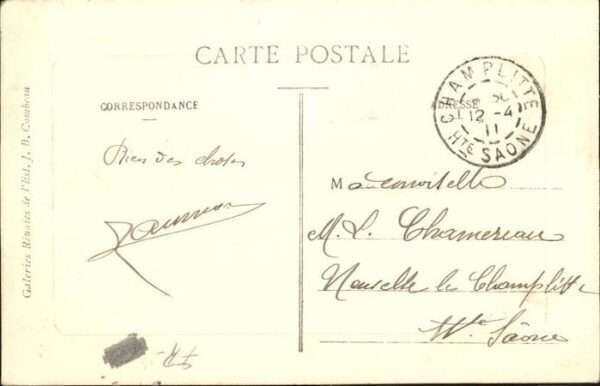 CARTE POSTALE
CORRESPONDANCE
ADRESSE
CHAMPLITTE
12-4
11
HTE SAÔNE
Galeries Réunies de l'Est, J. B.
Bien des choses
Mademoiselle
M. L. Chamereau
Neuvelle les Champlitte
Hte Saône